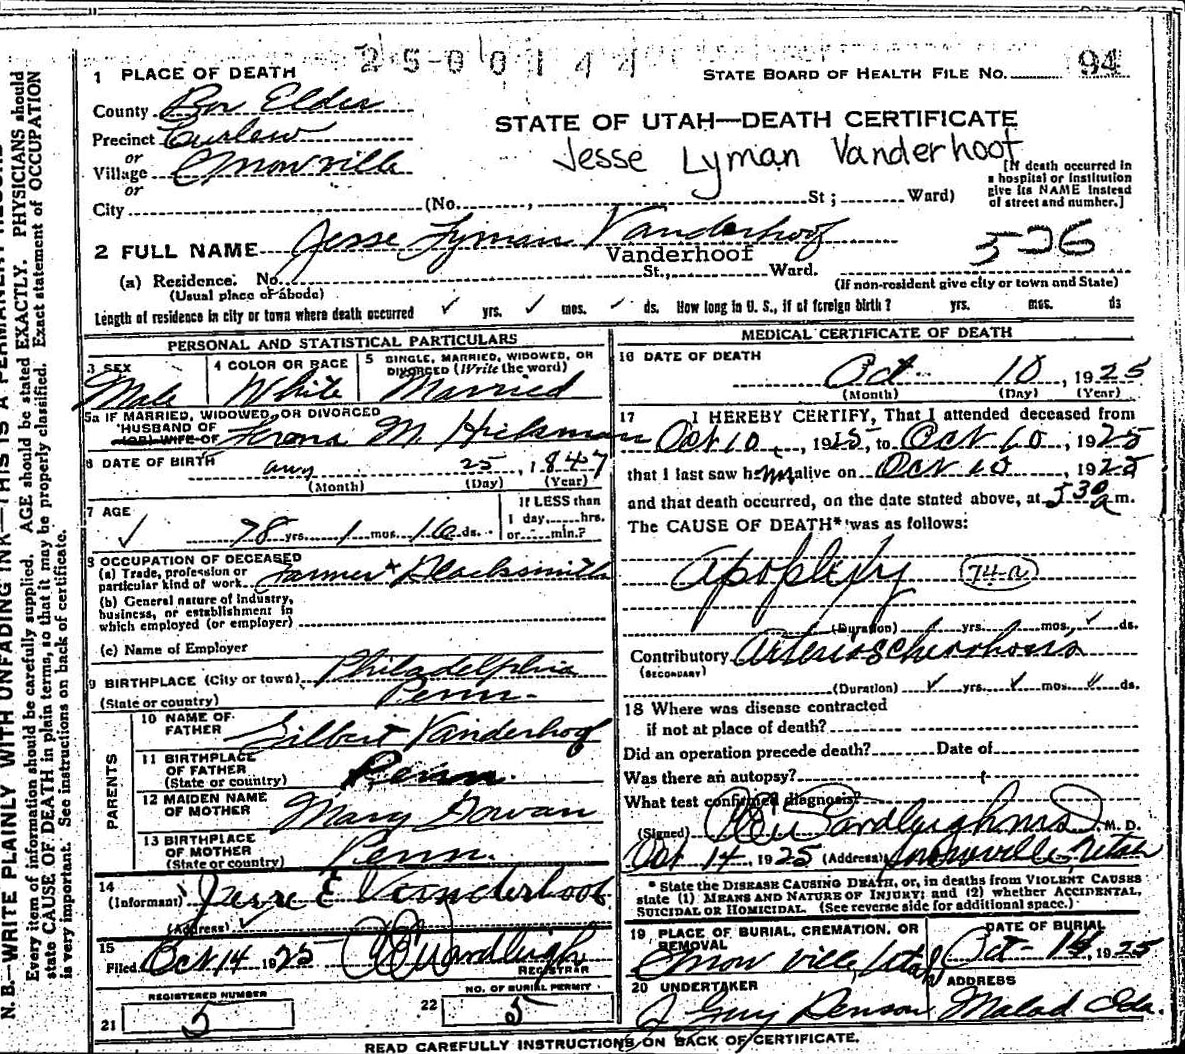 2500144
1 PLACE OF DEATH
STATE BOARD OF HEALTH FILE NO. 94
County Box Elder
STATE OF UTAH—DEATH CERTIFICATE
Precinct Curlew
Jesse Lyman Vanderhoof
or
Village Snowville
or
[If death occurred in
a hospital or institution
give its NAME instead
of street and number.]
City (No. , St ; Ward)
2 FULL NAME Jesse Lyman Vanderhoof
Vanderhoof
526
(a) Residence. No. St., Ward.
(Usual place of abode)
(If non-resident give city or town and State)
Length of residence in city or town where death occurred ✓ yrs. ✓ mos. ✓ ds. How long in U. S., if of foreign birth? yrs. mos. ds
PERSONAL AND STATISTICAL PARTICULARS
3 SEX
Male
4 COLOR OR RACE
White
5 SINGLE, MARRIED, WIDOWED, OR
DIVORCED (Write the word)
Married
5a IF MARRIED, WIDOWED, OR DIVORCED
HUSBAND OF
(OR) WIFE OF M. Hickman
6 DATE OF BIRTH Aug 25, 1847
(Month) (Day) (Year)
7 AGE
✓ 78 yrs. 1 mos. 16 ds.
If LESS than
1 day, hrs.
or min.?
8 OCCUPATION OF DECEASED
(a) Trade, profession or
particular kind of work Farmer + Blacksmith
(b) General nature of industry,
business, or establishment in
which employed (or employer)
(c) Name of Employer
9 BIRTHPLACE (City or town) Philadelphia
(State or country) Penn.
PARENTS
10 NAME OF
FATHER Gilbert Vanderhoof
11 BIRTHPLACE
OF FATHER
(State or country) Penn.
12 MAIDEN NAME
OF MOTHER Mary Gowan
13 BIRTHPLACE
OF MOTHER
(State or country) Penn.
14
(Informant) E Vanderhoof
(Address) ✓
15
Filed Oct 14 1925 Wardleigh
REGISTRAR
REGISTERED NUMBER
21 5
NO. OF BURIAL PERMIT
22 5
MEDICAL CERTIFICATE OF DEATH
16 DATE OF DEATH
Oct 10, 1925
(Month) (Day) (Year)
17 I HEREBY CERTIFY, That I attended deceased from
Oct 10, 1925, to Oct 10, 1925
that I last saw him alive on Oct 10, 1925
and that death occurred, on the date stated above, at 530 a m.
The CAUSE OF DEATH* was as follows:
Apoplexy 74-a
(Duration) yrs. mos. ✓ ds.
Contributory
(SECONDARY)
(Duration) ✓ yrs. ✓ mos. ds.
18 Where was disease contracted
if not at place of death?
Did an operation precede death? Date of
Was there an autopsy?
What test confirmed diagnosis?
(Signed) Wardleigh M. D.
Oct 14, 1925 (Address) Snowville Utah
* State the DISEASE CAUSING DEATH, or, in deaths from VIOLENT CAUSES
state (1) MEANS AND NATURE OF INJURY; and (2) whether ACCIDENTAL,
SUICIDAL OR HOMICIDAL. (See reverse side for additional space.)
19 PLACE OF BURIAL, CREMATION, OR
REMOVAL
Snowville, Utah
DATE OF BURIAL
Oct , 1925
20 UNDERTAKER
J Guy Benson
ADDRESS
Malad Ida.
READ CAREFULLY INSTRUCTIONS ON BACK OF CERTIFICATE.
N. B.—WRITE PLAINLY WITH UNFADING INK—THIS IS A PERMANENT RECORD
Every item of information should be carefully supplied. AGE should be stated EXACTLY. PHYSICIANS should
state CAUSE OF DEATH in plain terms, so that it may be properly classified. Exact statement of OCCUPATION
is very important. See instructions on back of certificate.